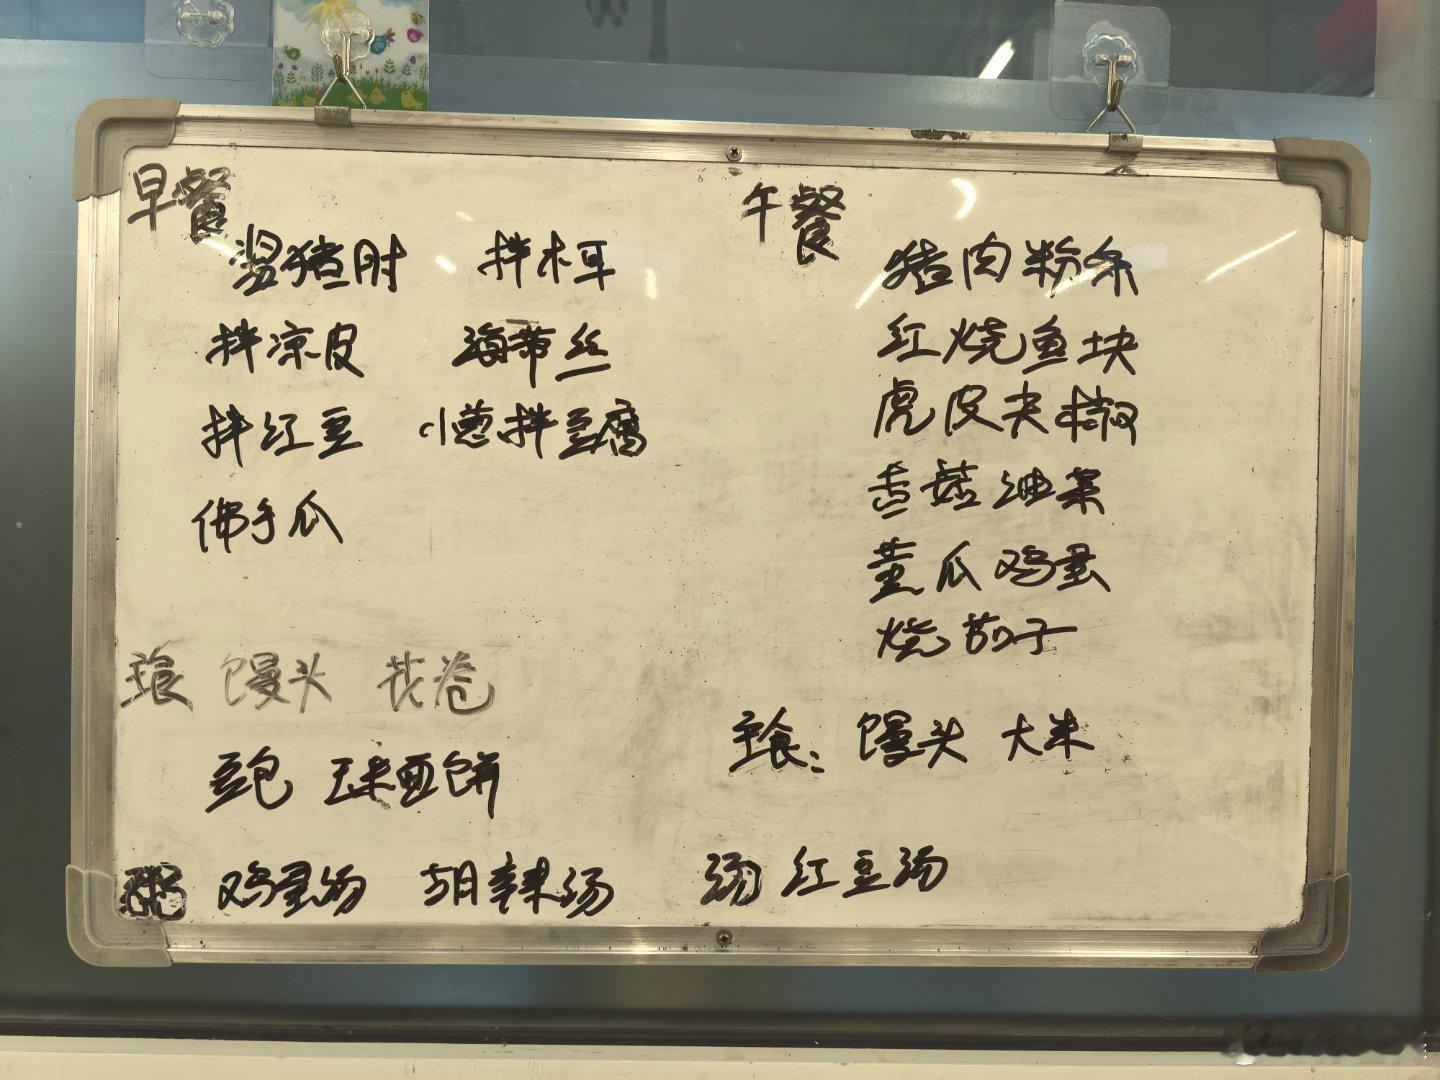 早餐
猪肘 拌木耳
拌凉皮 海带丝
拌红豆 小葱拌豆腐
佛手瓜
主食 馒头 花卷
豆包 玉米面饼
粥 鸡蛋汤 胡辣汤
午餐
猪肉粉条
红烧鱼块
虎皮尖椒
香菇油菜
黄瓜鸡蛋
烧茄子
主食: 馒头 大米
汤 红豆汤